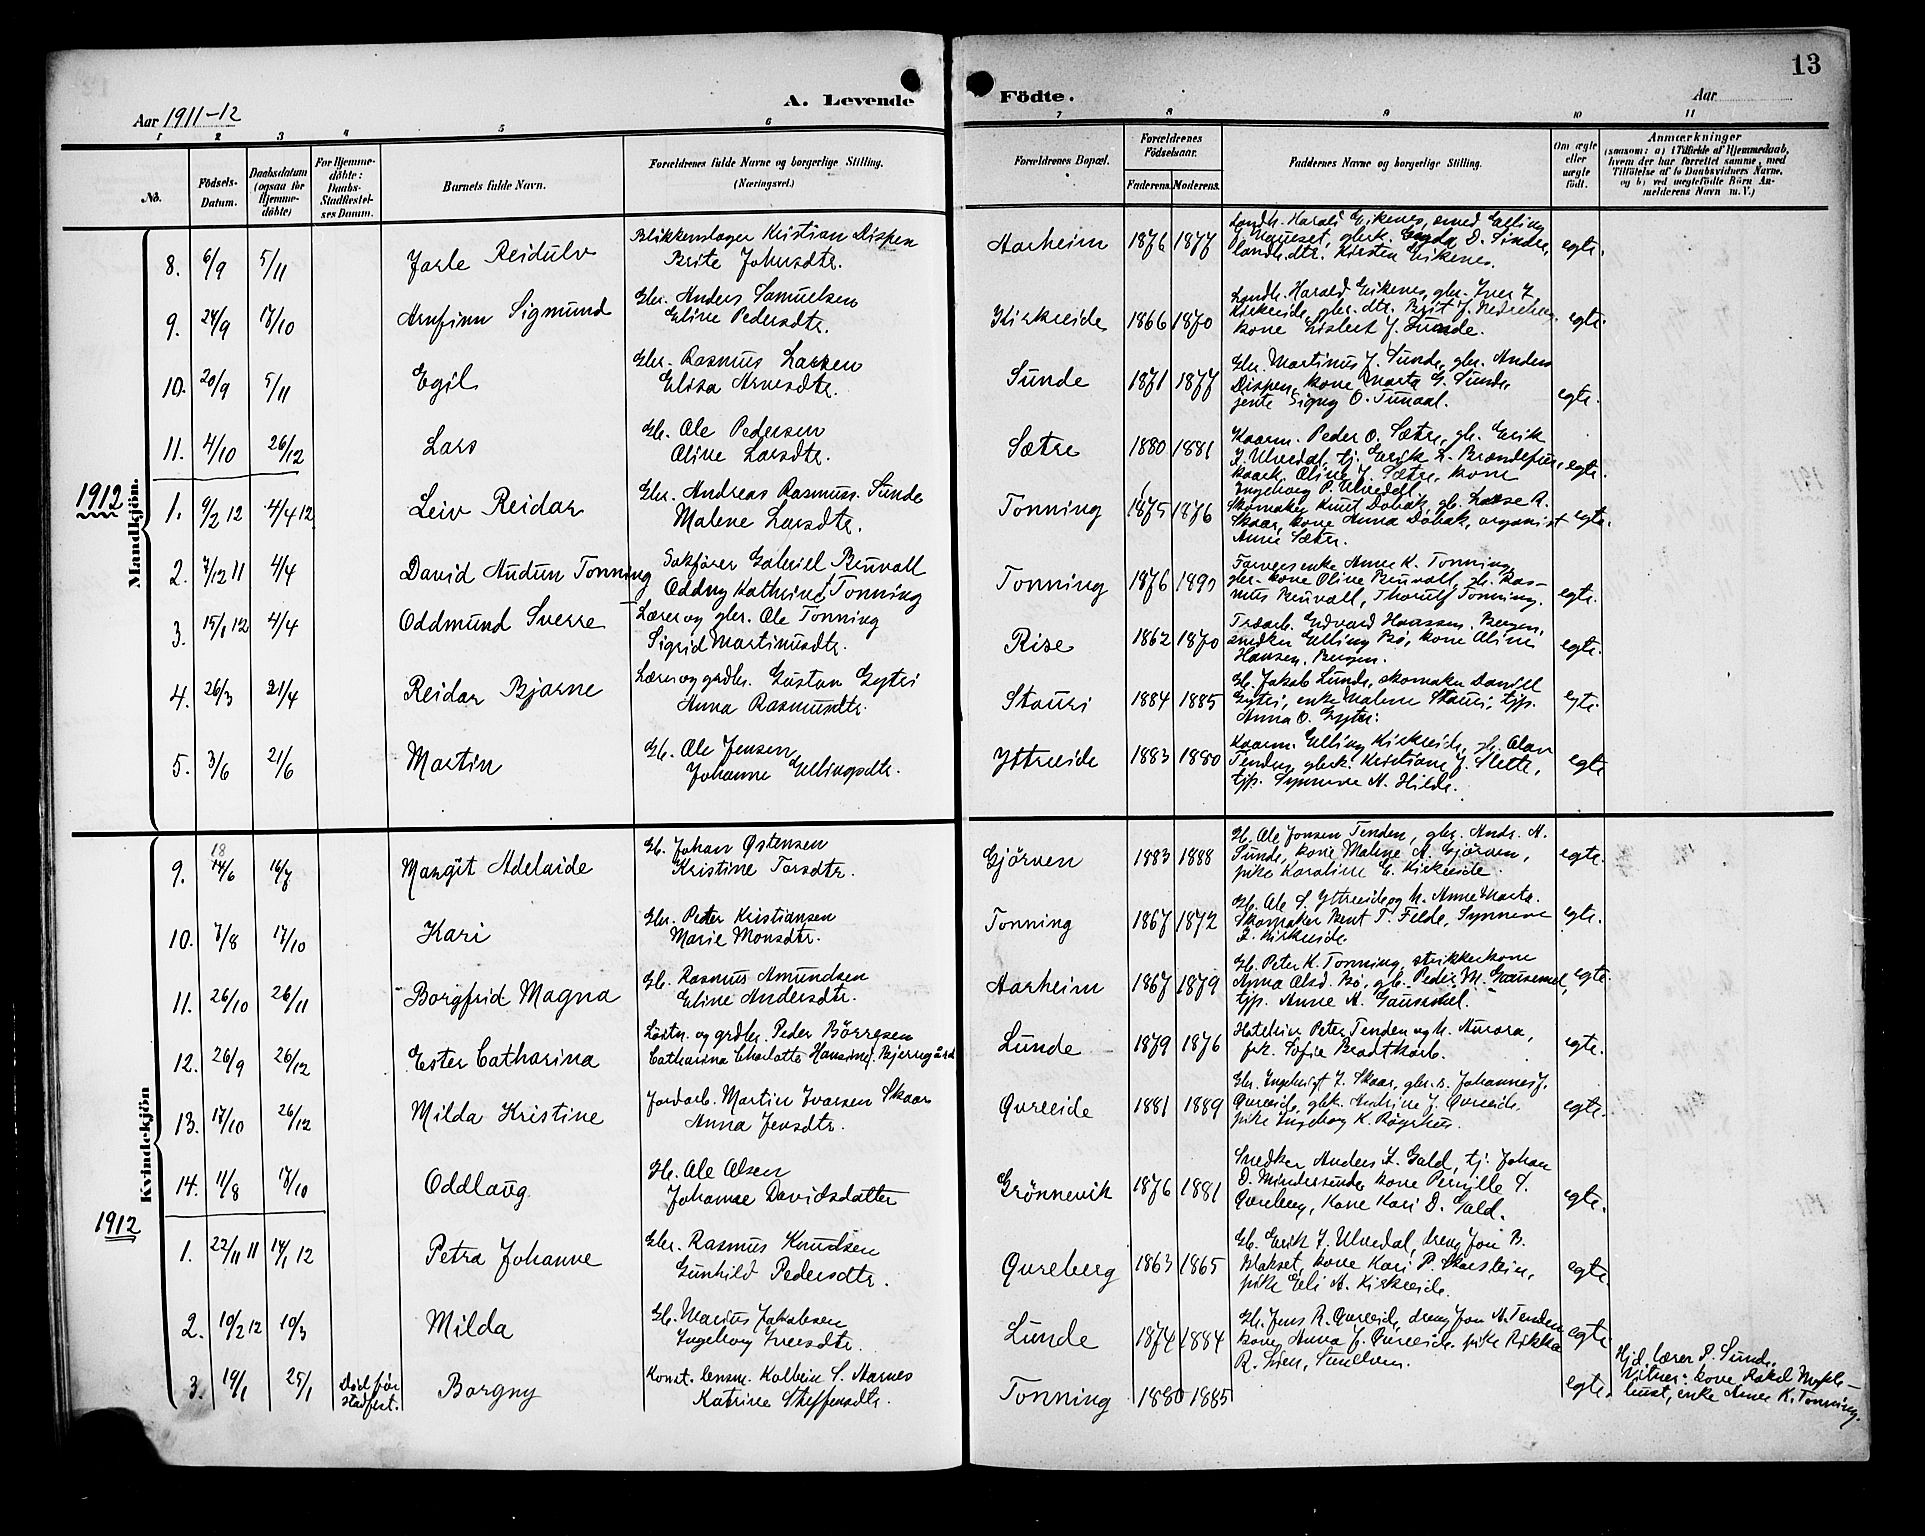 13
Aar 1911-12
A. Levende
Födte.
Aar
1 2 3 4 5 6 7 8 9 10 11
No.
Födsels-Datum.
Daabsdatum (ogsaa for Hjemme-döbte)
For Hjemme-döbte: Daabs-Stadfæstel-ses Datum.
Barnets fulde Navn.
Forældrenes fulde Navne og borgerlige Stilling. (Næringsvei.)
Forældrenes Bopæl.
Forældrenes Födselsaar.
Faderens. Moderens.
Faddernes Navne og borgerlig Stilling.
Om ægte eller uægte födt.
Anmærkninger
(saasom: a) i Tilfælde af Hjemmedaab, hvem der har forrettet samme, med Tilföielse af to Daabsvidners Navne, og b) ved uægtefödte Börn An-melderens Navn m. V.)
Mandkjön.
8. 6/9 5/11 Jarle Reidulv Blikkenslager Kristian Dispen
Brite Johnsdtr. Aarheim 1876 1877 Landh. Harald Eikenes, smed Elling
gbrk. Gyda D. Sindre,
landh.dtr. Kirsten Eikenes. egte.
9. 24/9 17/10 Arnfinn Sigmund Gbr. Anders Samuelsen
Eline Pedersdtr. Kirkeide 1866 1870 Landh. Harald Eikenes, gbr. Iver J.
Kirkeide, gbr. dtr. Brit J. Nedreberg
kone Lisbet J. Sunde. egte.
10. 20/9 5/11 Egil Gbr. Rasmus Larsen
Elisa Arnesdtr. Sunde 1871 1877 Gbr. Martinus J. Sunde, gbr. Anders
Dispen, kone Marta G. Sunde,
jente Signy O. Tunval. egte.
11. 4/10 26/12 Lars Gb. Ole Pedersen
Oline Larsdtr. Sætre 1880 1881 Kaarm. Peder O. Sætre, gb. Erik
J. Ulvedal, tj. Erik L. Brændefur,
kaark. Oline J. Sætre, kone
Ingeborg P. Ulvedal. egte.
1912
1. 9/2 12 4/4 12 Leiv Reidar Gbr. Andreas Rasmuss. Sunde
Malene Larsdtr. Tonning 1875 1876 Skomaker Knut Döbak, gb. Lasse A.
Skaar, kone Anna Döbak, organist
Anne Sæter. egte.
2. 7/12 11 4/4 David Audun Tonning Sakfører Gabriel Bruvoll
Oddny Kathrine Tonning Tonning 1876 1890 Farversenke Anne K. Tonning,
gbr. kone Oline Bruvoll, gb. Ras-
mus Bruvoll, Thorulf Tonning. egte.
3. 15/1 12 4/4 Oddmund Sverre Lærer og gbr. Ole Tonning
Sigrid Martinusdtr. Rise 1862 1870 Træarb. Edvard Hanssen, Bergen,
snedker Elling Bö, kone Oline
Hansen, Bergen. egte.
4. 26/3 21/4 Reidar Bjarne Lærer og grdbr. Gustav Gytri
Anna Rasmusdtr. Stauri 1884 1885 Gb. Jakob Lunde, skomaker Daniel
Gytri, enke Malene Stauri, tjp.
Anna O. Gytri. egte.
5. 3/6 21/6 Martin Gb. Ole Jensen
Johanne Ellingsdtr. Yttreeide 1883 1880 Kaarm. Elling Kirkeide, gb. Olav
Tenden, gbrk. Kristiane J. Slette,
tjp. Synneve A. Hilde. egte
Kvindekjön
9. 18 14/6 16/7 Margit Adelaide Gb. Johan Østensen
Kristine Torsdtr. Gjörven 1883 1888 Gb. Ole Jonsen Tenden, gbr. Andr. A.
Sunde, kone Malene A. Gjörven,
pike Karoline E. Kirkeide. egte.
10. 7/8 17/10 Kari Gbr. Peter Kristiansen
Marie Monsdtr. Tonning 1867 1872 Gb. Ole S. Yttreeide og h. Anne Marte.
Skomaker Bent T. Felde, Synneve
Z. Kirkeide. egte.
11. 26/10 26/11 Borgfrid Magna Gb. Rasmus Amundsen
Eline Andersdtr. Aarheim 1867 1879 Gb. Peter K. Tonning, strikkerkone
Anna Olsd. Bö, gb. Peder M. Gausemel,
tjp. Anne A. Gausemel. egte.
12. 26/9 26/12 Ester Catharina Løitn. og grdbr. Peder Börresen
Catharina Charlotte Hansine f. Bjerregård Lunde 1879 1876 Hoteleier Peter Tenden og h. Aurora,
frk. Sofie Bradtkorb. egte.
13. 17/10 26/12 Milda Kristine Jordarb. Martin Ivarsen Skaar
Anna Jensdtr. Qvreeide 1881 1889 Gbr. Ingebrigt J. Skaar, gbr.s. Johannes J.
Qvreeide, gbrk. Andrine J. Qvreeide,
pike Ingeborg K. Röyrhus. egte.
14. 11/8 17/10 Oddlaug Gb. Ole Olsen
Johanne Davidsdatter Grönnevik 1876 1881 Snedker Anders J. Gald, tj. Johan
D. Mindresunde, kone Pernille S.
Qvreberg, kone Kari D. Gald. egte.
1912
1. 22/11 11 14/1 12 Petra Johanne Gbr. Rasmus Knudsen
Gunhild Pedersdtr. Qvreberg 1863 1865 Gb. Erik J. Ulvedal, dreng Jon B.
Blakset, kone Kari P. Skarstein,
pike Eli A. Kirkeide. egte
2. 10/2 12 10/3 Milda Gb. Marius Jakobsen
Ingeborg Iversdtr. Lunde 1874 1884 Gb. Jens R. Qvreeide, dreng Jon A. Tenden
kone Anna J. Qvreeide, pike Rikka
R. egte
3. 19/1 25/1 Död för stadfest. Borgny Konst. lensm. Kolbein S. Aarnes
Katrine Steffensdtr. Tonning 1880 1885 egte. Hjd. lærer P. Sunde.
Vitner: kone Rakel Mykle-
bust, enke Anne K. Tonning.